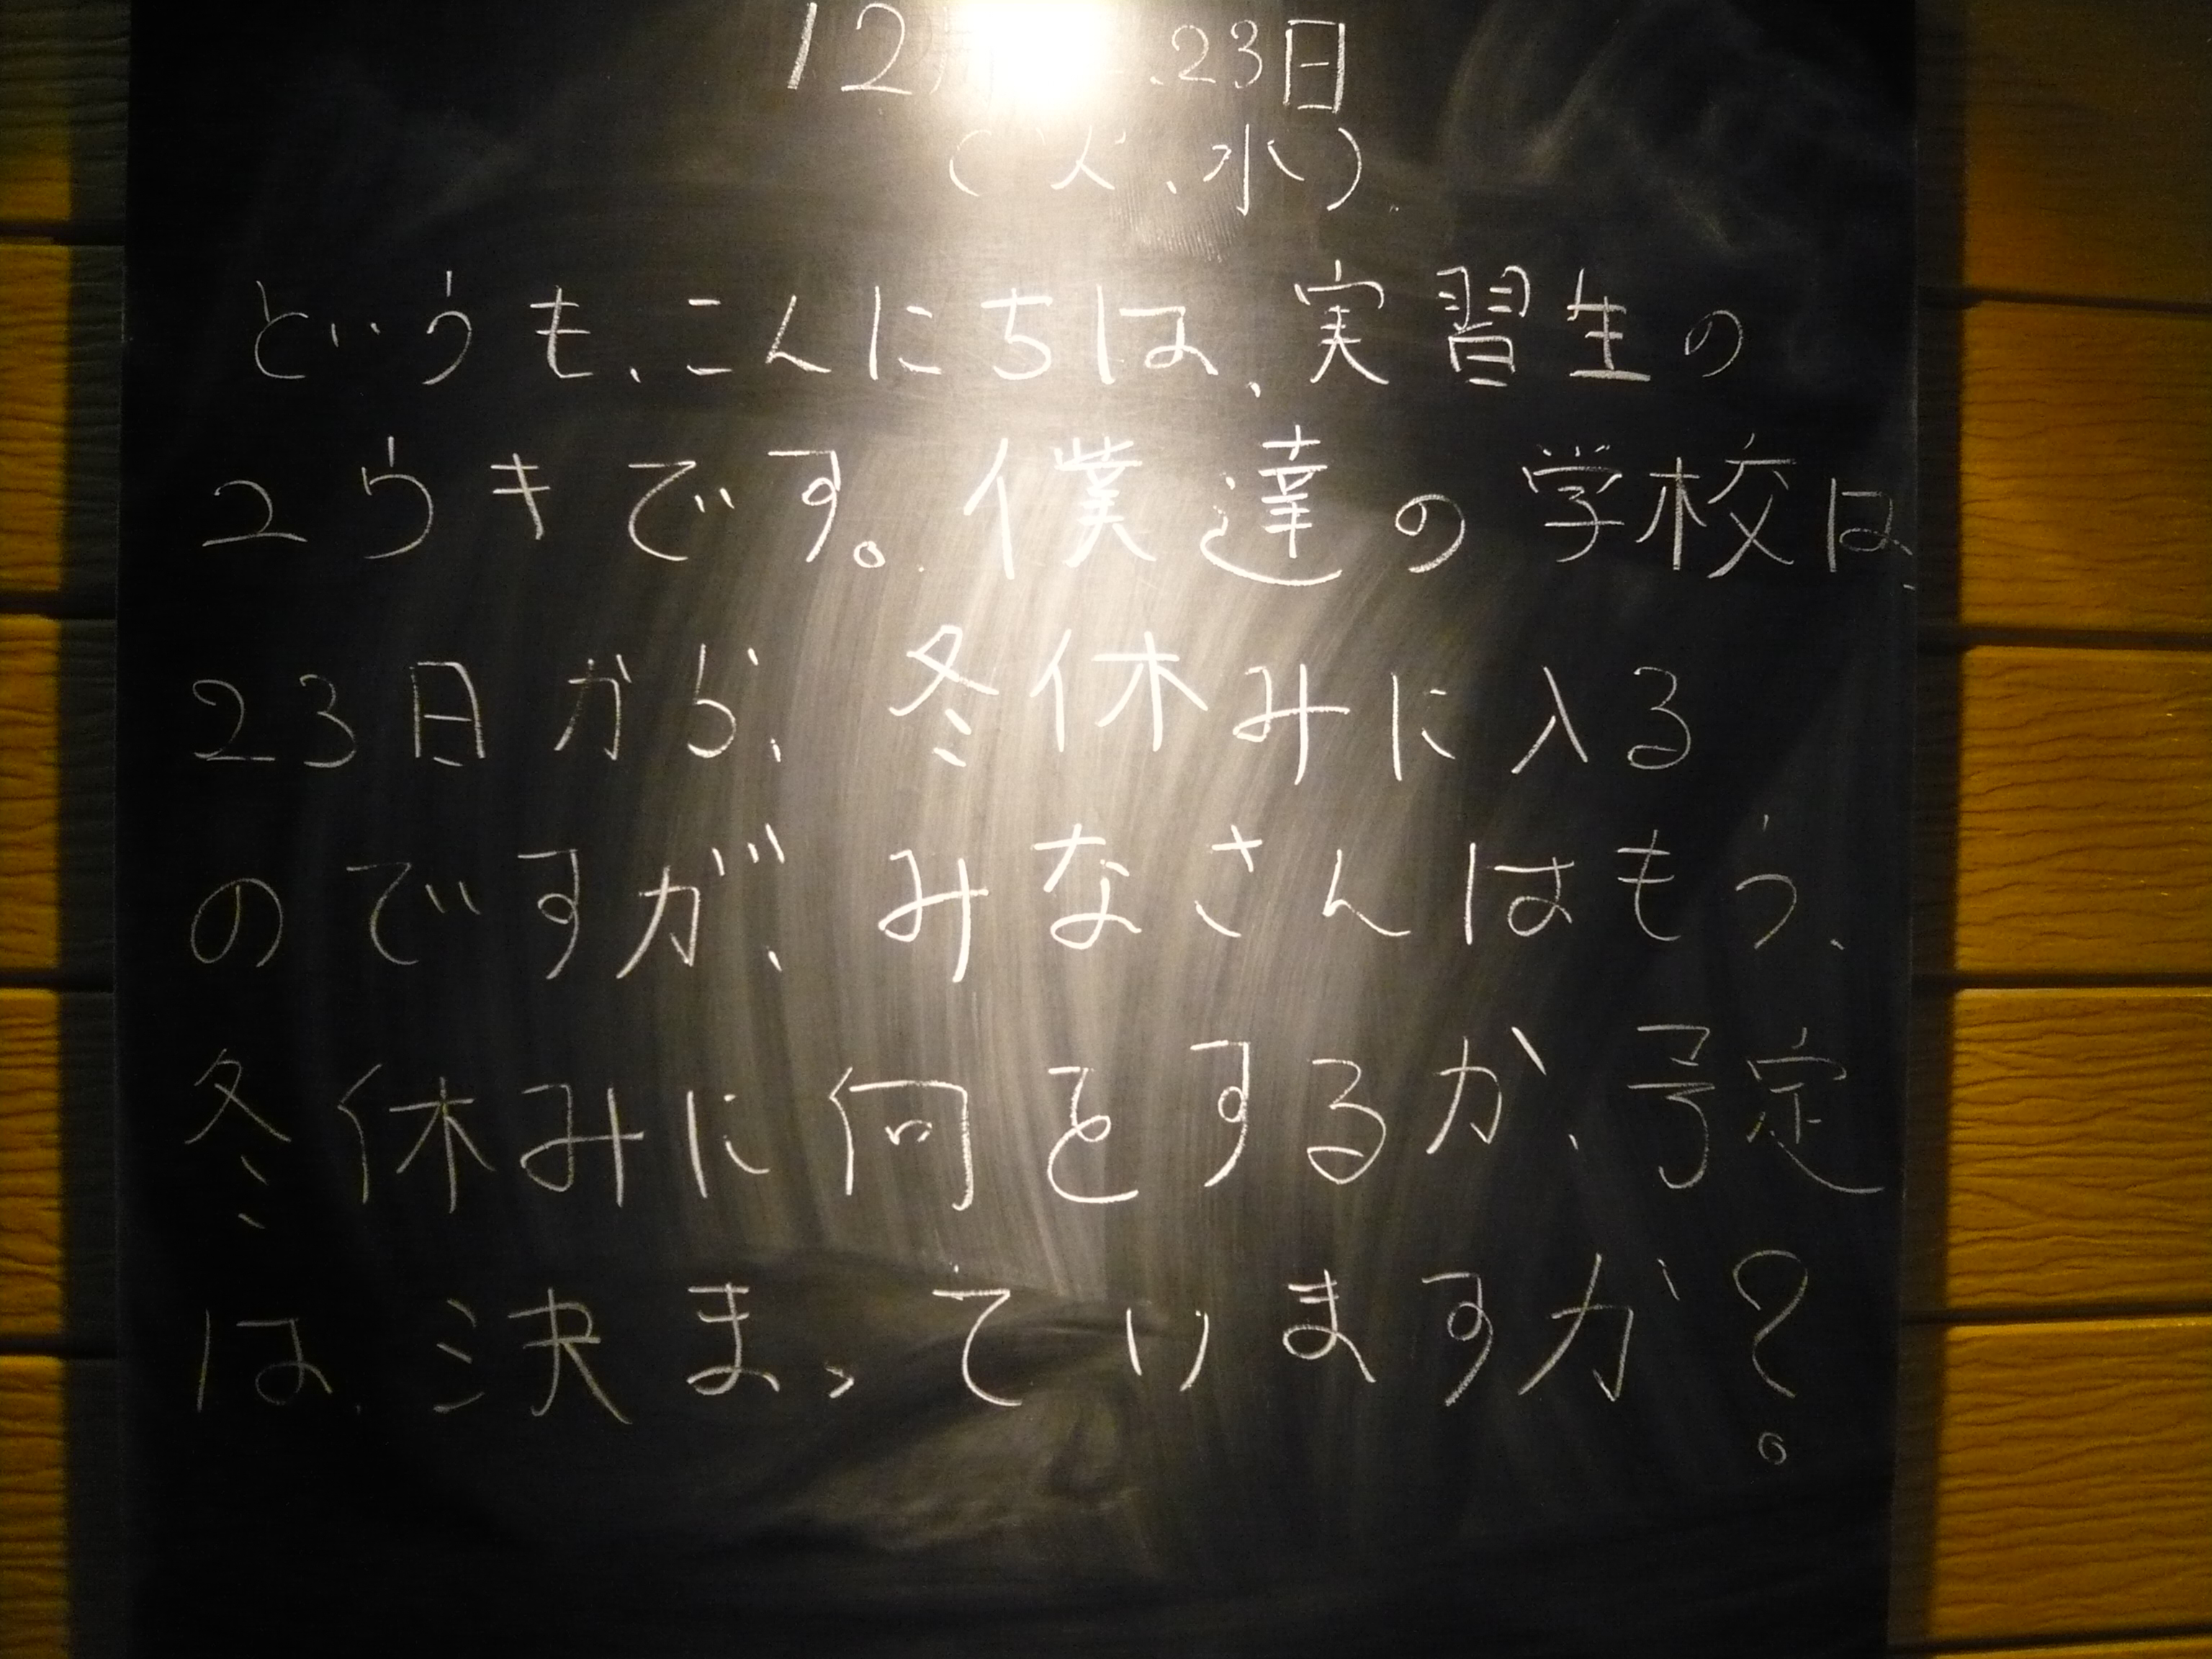 12 .23日
(火、水)
どうも、こんにちは、実習生の
ユウキです。僕達の学校は、
23日から、冬休みに入る
のですが、みなさんはもう、
冬休みに何をするか、予定
は、決まっていますか？。